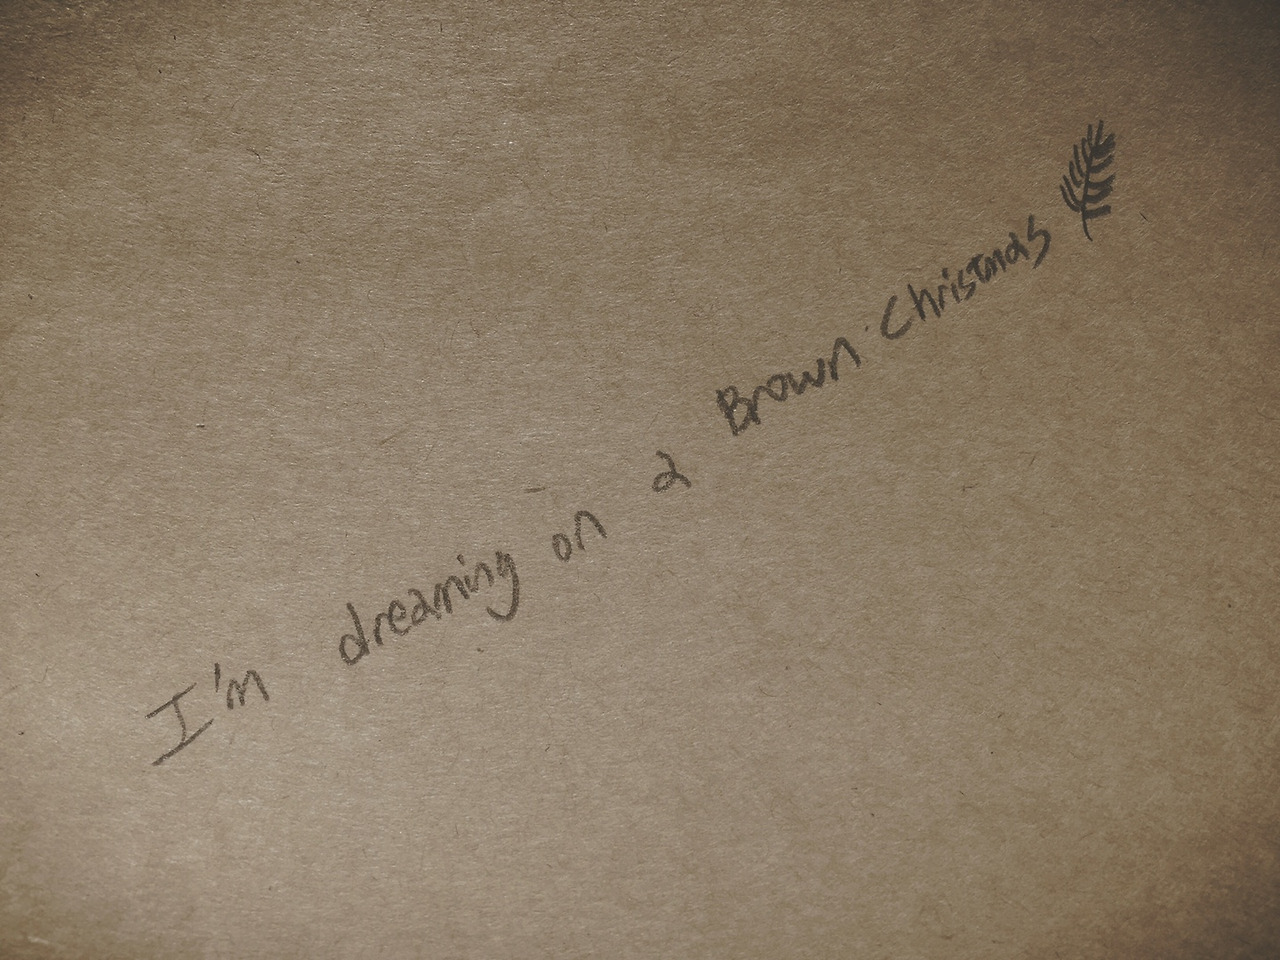 I'm dreaming on a Brown Christmas